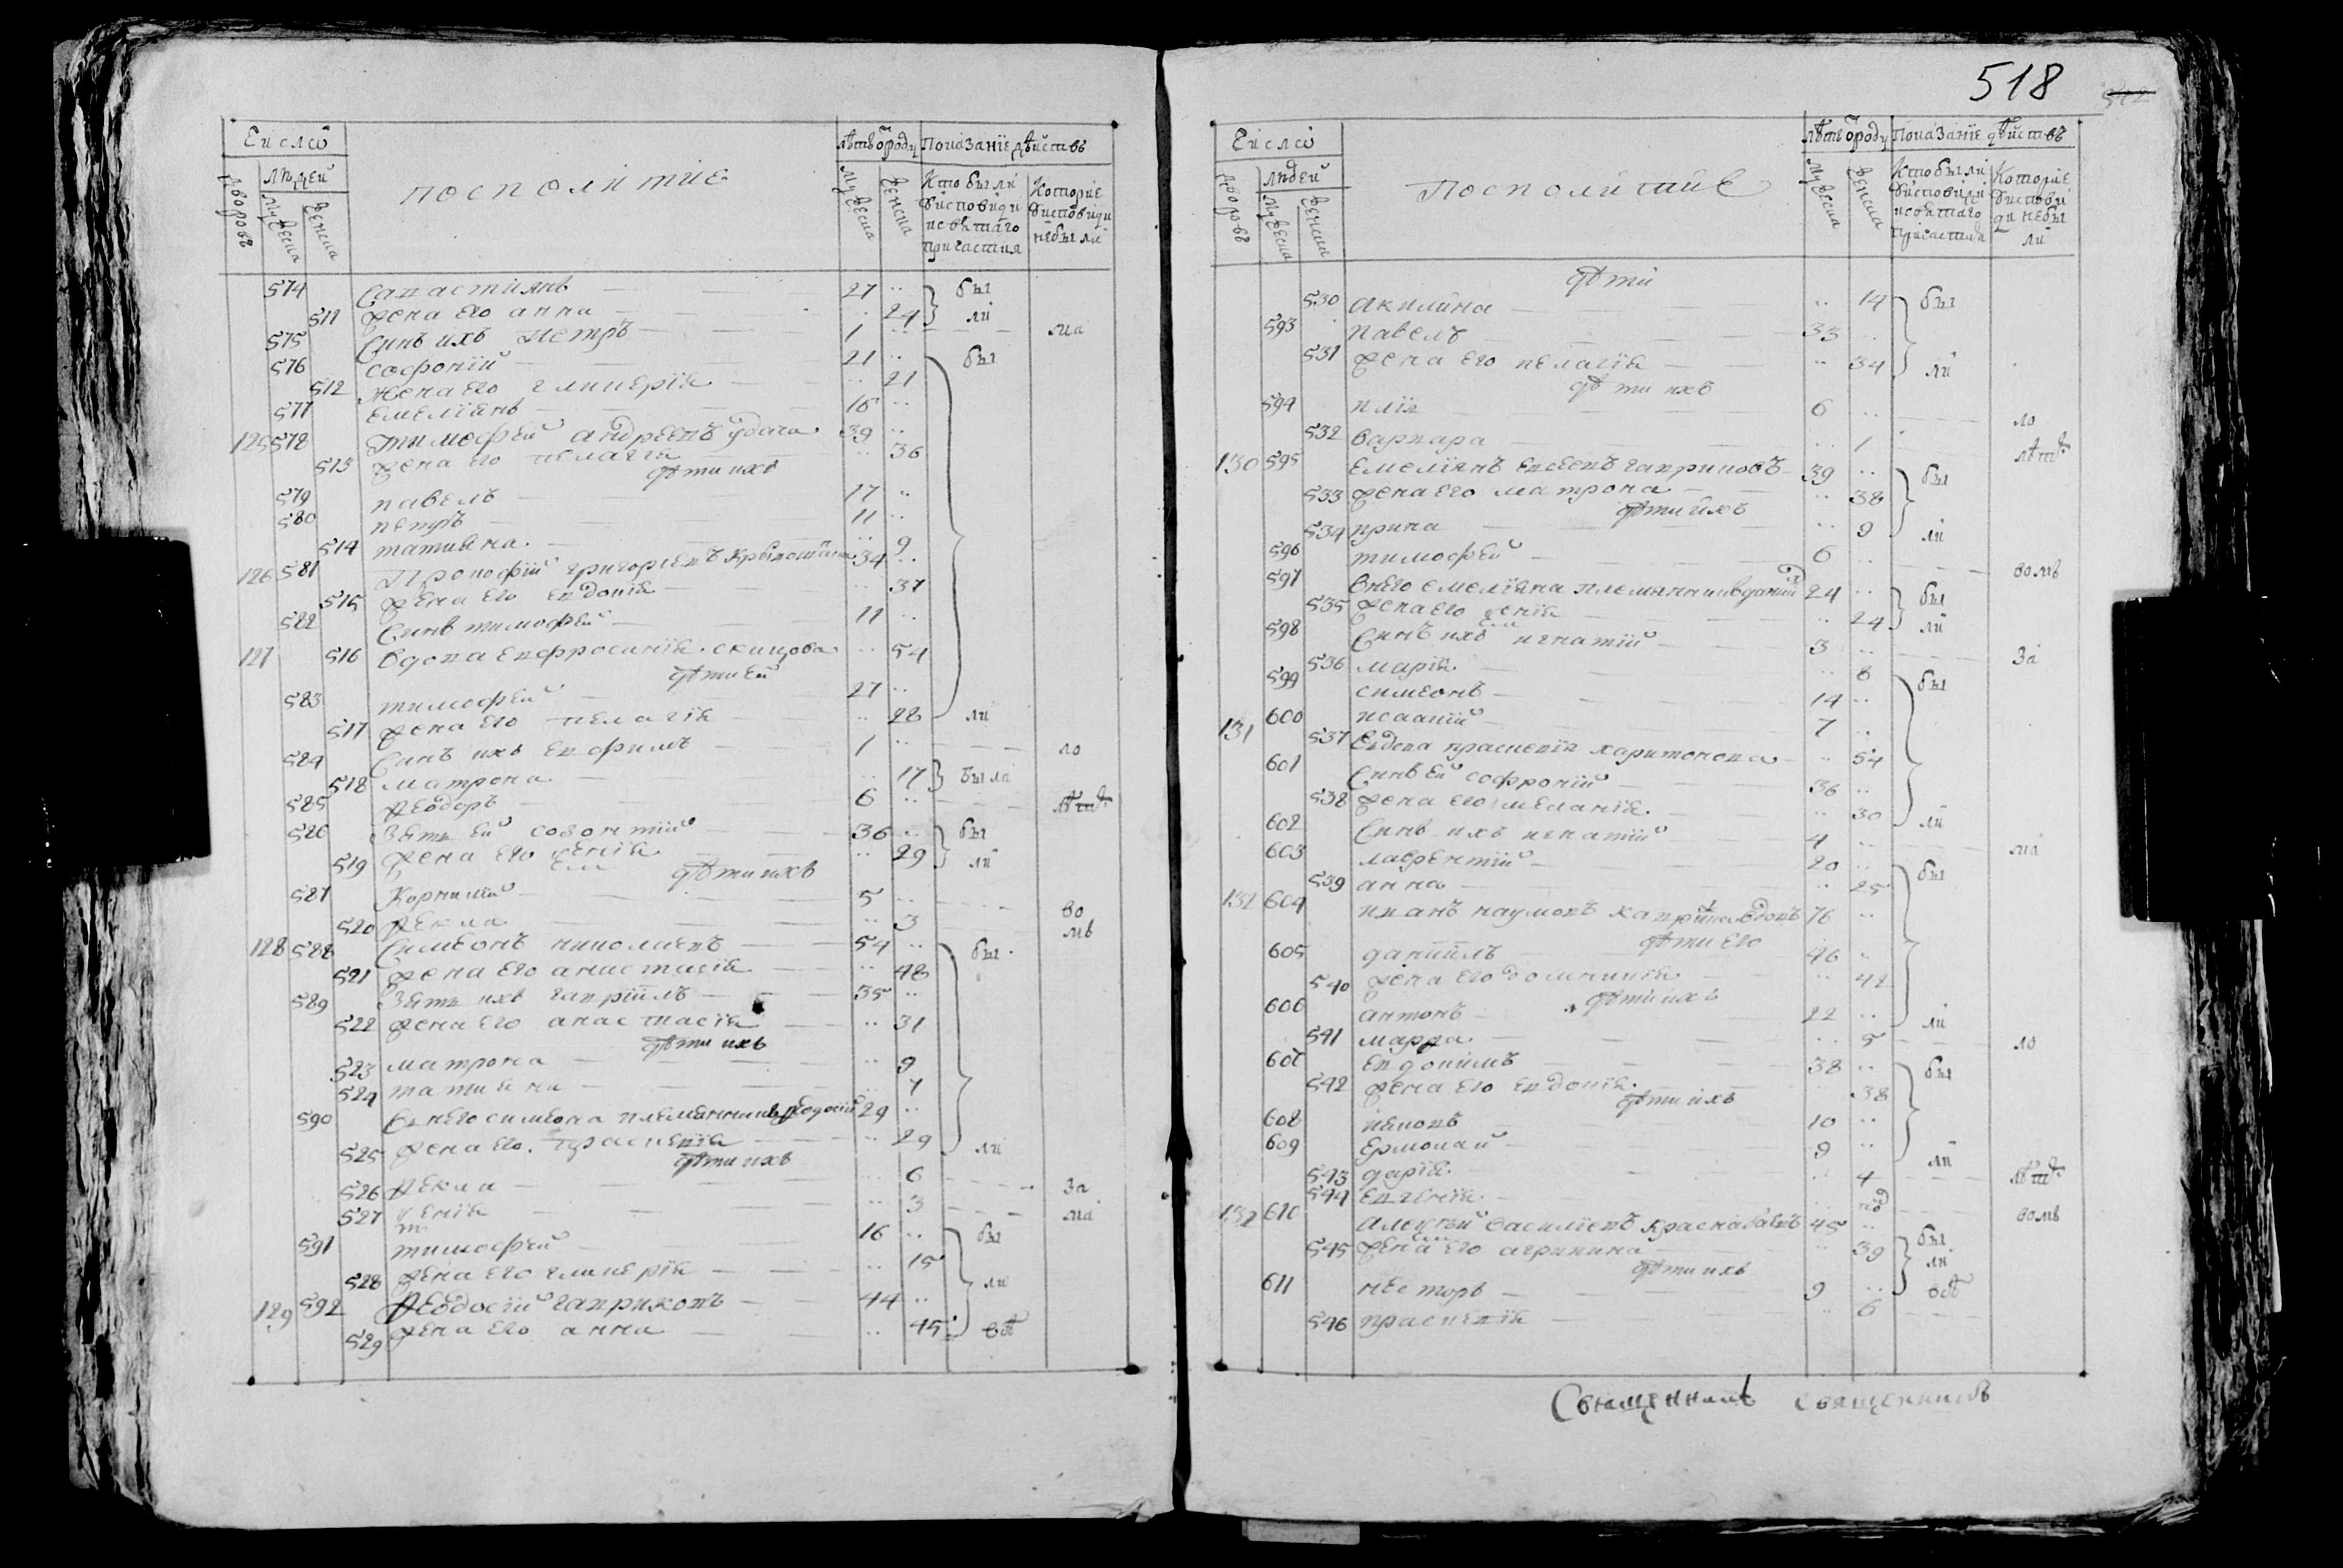 518
Число
дворовъ
людей
мужеска
женска
посполитіе
лѣтъ ѿ роду
мужеска
женска
Показаніе дѣйствъ
Кто были
ѵ исповѣди
и свѣтаго
причастия
Которіе
ѵ исповѣди
не были
574 Сапастиянъ 27 бы
511 жена его анна 24 ли
575 Синъ ихъ Петръ 1 ма
576 софоній 21 бы
512 жена его гликерія 21
577 емеліянъ 16
125 578 Тимофей андреевъ удога 39
513 жена его пелагія 36
дѣти ихъ
579 павелъ 17
580 петръ 11
514 татияна 9
126 581 Прокофій григориевъ 34
515 жена его евдокія 37
582 Синъ тимофей 11
127 516 Вдова евфросинія 54
дѣти ей
583 тимофей 27
517 жена его пелагія 28 ли
584 Синъ ихъ евфимъ 1 ло
518 матрона 17 была
585 Ѳеодоръ 6 лѣтъ
586 Зять ей созонтій 36 бы
519 жена его ксенія 29 ли
дѣти ихъ
587 Корнилій 5 во
520 Ѳекла 3 мв
128 588 Симеонъ николаевъ 54 бы
521 жена его анастасія 48
589 Зять ихъ гавріилъ 35
522 жена его анастасія 31
дѣти ихъ
523 матрона 9
524 татияна 7
590 В него симеона племянникъ Ѳеодосій 29
525 жена его параскевія 29 ли
дѣти ихъ
526 Ѳекла 6 за
527 ксенія 3 ма
591 тимофей 16 бы
528 жена его гликерія 15 ли
129 592 Ѳеодосій гавриковъ 44
529 жена его анна 45
Число
дворовъ
людей
мужеска
женски
Посполитіе
лѣтъ ѿ роду
мужеска
женска
Показаніе дѣйствъ
Кто были
ѵ исповѣди
и свѣтаго
причастия
Которіе
ѵ исповѣ
ди не бы
ли
дѣти
530 акилина 14 бы
593 павелъ 33
531 жена его пелагія 34 ли
дѣти ихъ
594 илія 6 ло
532 варвара 1 лѣтъ
130 595 Емеліянъ евсеевъ гавриковъ 39 бы
533 жена его матрона 38
дѣти ихъ
534 ирина 9 ли
596 тимофей 6 вомв
597 В него емеліяна племянникъ даниіл 24 бы
535 жена его ксенія 24 ли
598 Синъ ихъ игнатій 3 за
536 марія 8 бы
599 симеонъ 14
600 исаакій 7
131 537 Вдова праскевія харитонова 54
601 Синъ ей софроній 36
538 жена его меланія 30 ли
602 Синъ ихъ игнатій 4 ма
603 лаврентій 20 бы
539 анна 25
132 604 иванъ наумовъ 76
дѣти его
605 даніилъ 46
540 жена его домникія 42
дѣти ихъ
606 антонъ 22 ли
541 марѳа 5 ло
607 евдокимъ 38 бы
542 жена его евдокія 38
дѣти ихъ
608 яковъ 10
609 ермолай 9 ли
543 дарія 4 лѣтъ
544 евгенія вомв
132 610 Алексѣй василіевъ 45 бы
545 жена его агрипина 39 ли
дѣти ихъ
611 несторъ 9
546 праскевія 6
Священникъ священникъ